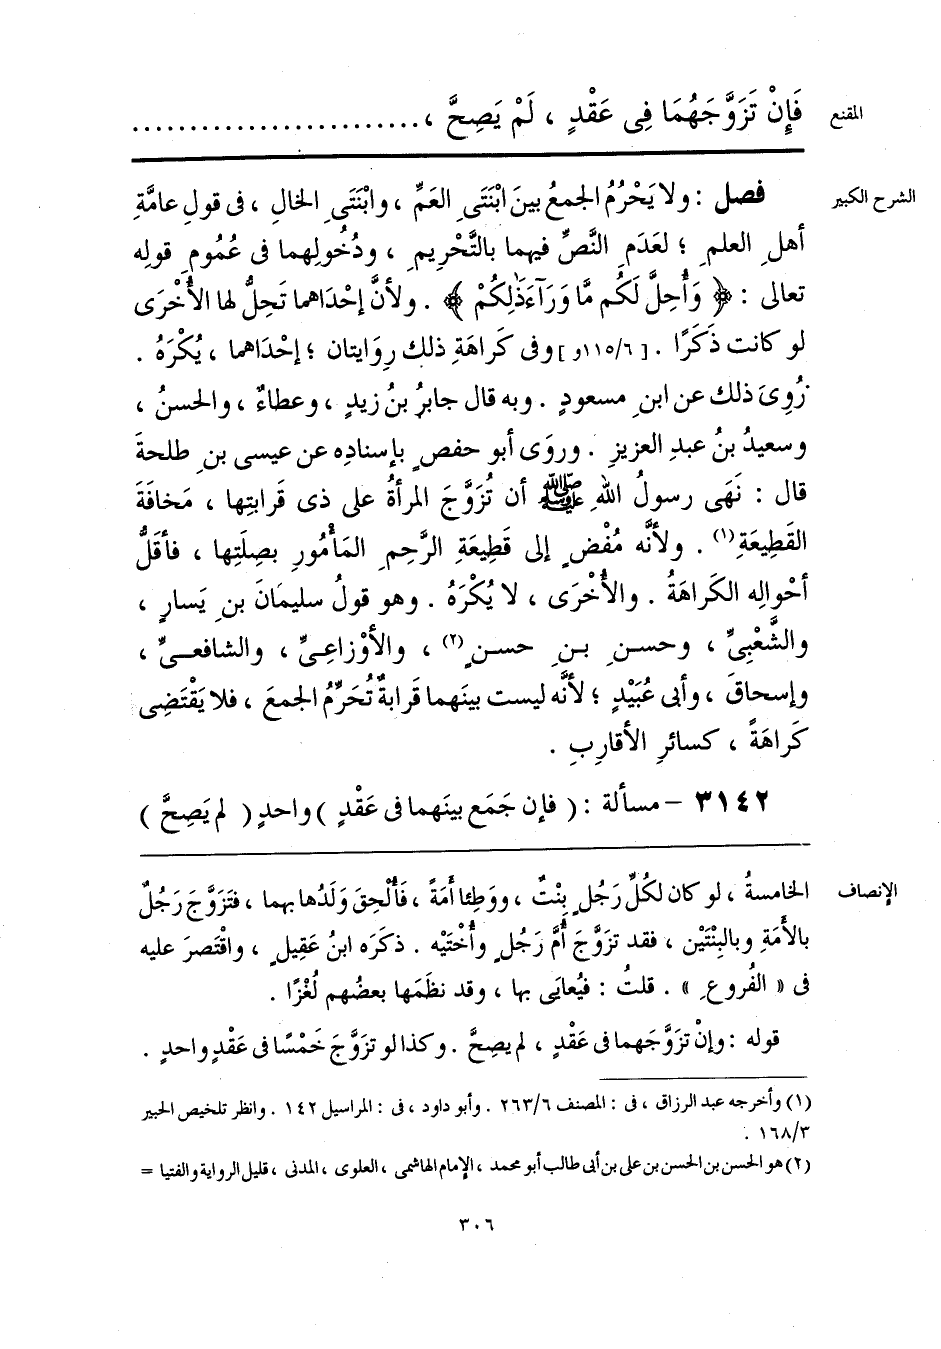 المقنع فَإِنْ تَزَوَّجَهُمَا فِى عَقْدٍ ، لَمْ يَصِحَّ ، .........................
الشرح الكبير فصل : ولا يَحْرُمُ الجمعُ بينَ ابْنَتَىِ العَمِّ ، وابْنَتَىِ الخالِ ، فى قولِ عامَّةِ
أهلِ العلمِ ؛ لعَدَمِ النَّصِّ فيهما بالتَّحْرِيمِ ، ودُخُولِهما فى عُمُومِ قولِه
تعالى : ﴿ وَأُحِلَّ لَكُم مَّا وَرَآءَ ذَٰلِكُمْ ﴾ . ولأنَّ إحْدَاهما تَحِلُّ لها الأُخْرَى
لو كانت ذَكَرًا . [ ١١٥/٦و ] وفى كَراهَةِ ذلك رِوَايتان ؛ إحْدَاهما ، يُكْرَهُ .
رُوِىَ ذلك عن ابنِ مسعودٍ . وبه قال جابرُ بنُ زيدٍ ، وعطاءٌ ، والحسنُ ،
وسعيدُ بنُ عبدِ العزيزِ . وروَى أبو حفصٍ بإسنادِه عن عيسى بنِ طلحةَ
قال : نَهَى رسولُ اللهِ ﷺ أن تُزَوَّجَ المرأةُ على ذى قَرابتِها ، مَخافَةَ
القَطِيعَةِ(١) . ولأنَّه مُفْضٍ إلى قَطِيعَةِ الرَّحِمِ المَأْمُورِ بصِلَتِها ، فأقَلُّ
أحْوالِه الكَراهَةُ . والأُخْرَى ، لا يُكْرَهُ . وهو قولُ سليمانَ بنِ يَسارٍ ،
والشَّعْبِىِّ ، وحسنِ بنِ حسنٍ(٢) ، والأوْزاعِىِّ ، والشافعىِّ ،
وإسحاقَ ، وأبى عُبَيْدٍ ؛ لأنَّه ليست بينَهما قَرابةٌ تُحَرِّمُ الجمعَ ، فلا يَقْتَضِى
كَراهَةً ، كسائرِ الأقاربِ .
٣١٤٢ – مسألة : ( فإن جَمَع بينَهما فى عَقْدٍ ) واحدٍ ( لم يَصِحَّ )
الإنصاف الخامسةُ ، لو كان لكُلِّ رَجُلٍ بِنْتٌ ، ووَطِئا أَمَةً ، فَأُلْحِقَ وَلَدُها بهما ، فتَزَوَّجَ رَجُلٌ
بالأَمَةِ وبالبِنْتَيْن ، فقد تزَوَّجَ أُمَّ رَجُلٍ وأُخْتَيْه . ذكَرَه ابنُ عَقِيلٍ ، واقْتَصرَ عليه
فى « الفُروعِ » . قلتُ : فيُعايَى بها ، وقد نظَمَها بعضُهم لُغْزًا .
قوله : وإنْ تزَوَّجَهما فى عَقْدٍ ، لم يصِحَّ . وكذا لو تزَوَّجَ خَمْسًا فى عَقْدٍ واحدٍ .
(١) وأخرجه عبد الرزاق ، فى : المصنف ٢٦٣/٦ . وأبو داود ، فى : المراسيل ١٤٢ . وانظر تلخيص الحبير
١٦٨/٣ .
(٢) هو الحسن بن الحسن بن على بن أبى طالب أبو محمد ، الإمام الهاشمى ، العلوى ، المدنى ، قليل الرواية والفتيا =
٣٠٦